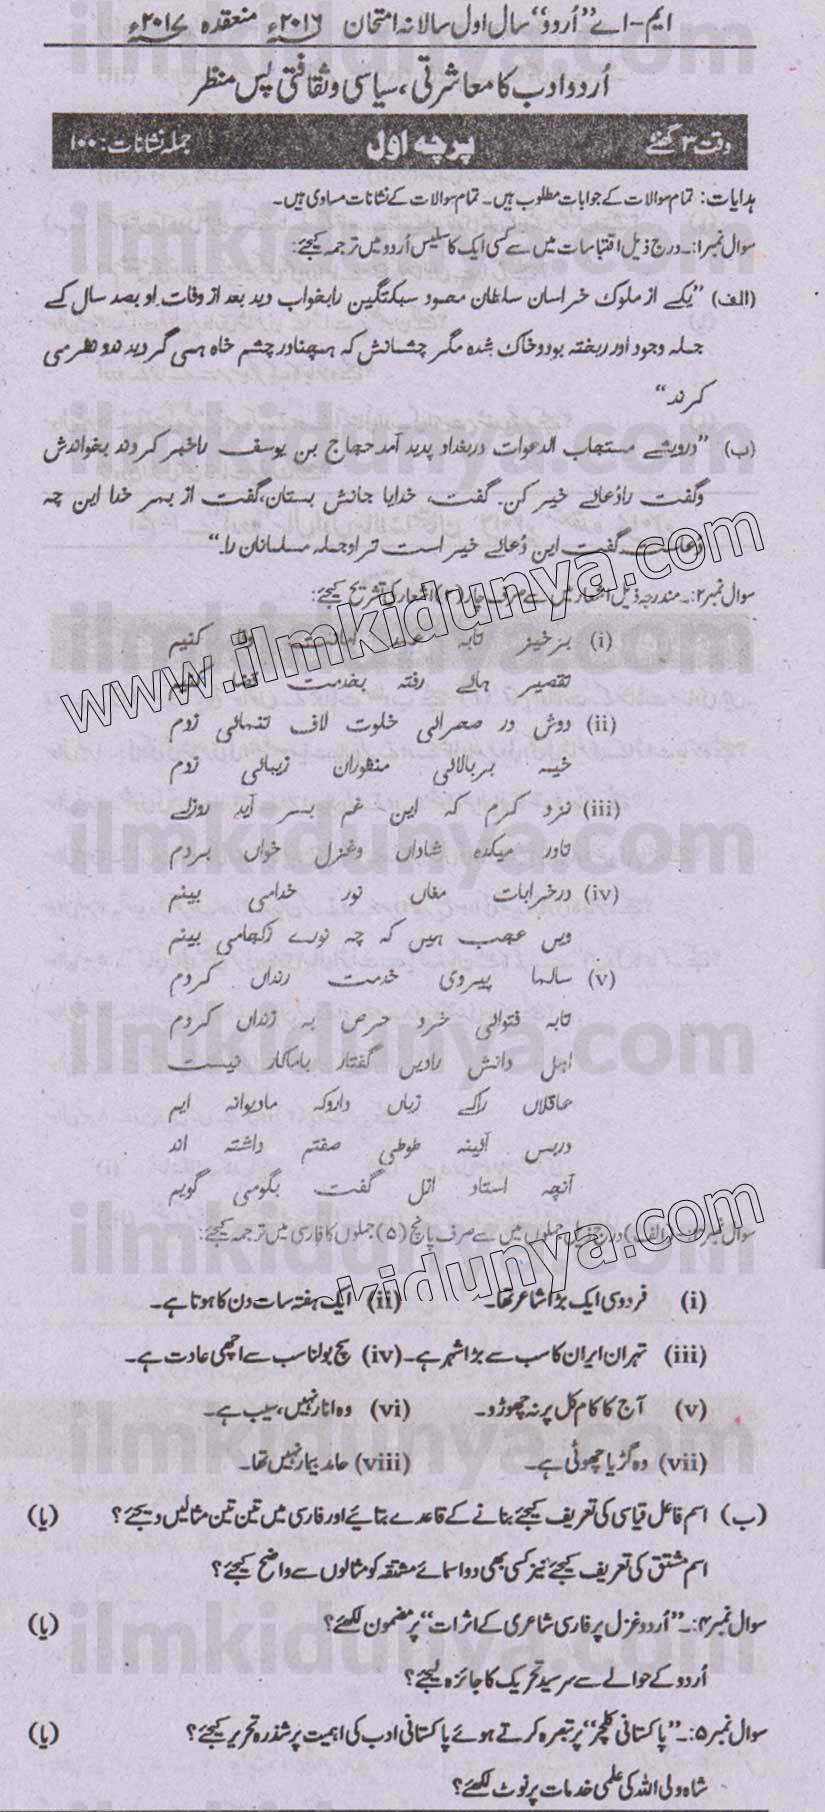 ایم-اے "اُردو" سال اول سالانہ امتحان ۲۰۱۶ء منعقدہ ۲۰۱۷ء
اُردو ادب کا معاشرتی، سیاسی و ثقافتی پس منظر
وقت ۳ گھنٹے پرچہ اول جملہ نشانات: ۱۰۰
ہدایات: تمام سوالات کے جوابات مطلوب ہیں۔ تمام سوالات کے نشانات مساوی ہیں۔
سوال نمبر۱:۔ درج ذیل اقتباسات میں سے کسی ایک کا سلیس اُردو میں ترجمہ کیجئے:
(الف) "یکے از ملوک خراسان سلطان محمود سبکتگین را بخواب دید بعد از وفات او بصد سال کے
جملہ وجود اور ریختہ بود و خاک شدہ مگر چشمانش کہ ہمچنادر چشم خاہ ہمی گردید ندو نظر می
کرند"
(ب) "درویشے مستجاب الدعوات در بغداد پدید آمد حجاج بن یوسف را خبر کردند بخواندش
وگفت را دُعائے خیر کن۔ گفت، خدایا جانش بستان، گفت از بہر خدا این چہ
دُعاست۔ گفت این دُعائے خیر است ترا و جملہ مسلمانان را۔"
سوال نمبر۲:۔ مندرجہ ذیل اشعار میں سے صرف چار (۴) اشعار کی تشریح کیجئے:
(i) برخیز تابہ کنیم
تقصیر ہائے رفتہ بخدمت قضا کنیم
(ii) دوش در صحرائی خلوت لاف تنہائی زدم
خیمہ بربالائی منظوران زیبائی زدم
(iii) نزد کرم کہ این غم بسر آید روزے
تاور میکدہ شاداں وغزل خواں بردم
(iv) درخرابات مغاں نور خدامی بینم
ویں عجب بیں کہ چہ نورے زکجامی بینم
(v) سالہا پیروی خدمت رنداں کردم
تابہ فتوائی خرد حرص بہ زنداں کردم
اہل دانش رادیں گفتار باماکار نیست
عاقلاں راکے زیاں داردکہ مادیوانہ ایم
درپس آئینہ طوطی صفتم داشتہ اند
آنچہ استاد اقل گفت بگومی گویم
سوال نمبر۳: (الف) درج ذیل جملوں میں سے صرف پانچ (۵) جملوں کا فارسی میں ترجمہ کیجئے:
(i) فردوسی ایک بڑا شاعر تھا۔ (ii) ایک ہفتہ سات دن کا ہوتا ہے۔
(iii) تہران ایران کا سب سے بڑا شہر ہے۔ (iv) سچ بولنا سب سے اچھی عادت ہے۔
(v) آج کا کام کل پر نہ چھوڑو۔ (vi) وہ انار نہیں، سیب ہے۔
(vii) وہ گڑیا چھوٹی ہے۔ (viii) حامد بیمار نہیں تھا۔
(ب) اسم فاعل قیاسی کی تعریف کیجئے بنانے کے قاعدے بتائیے اور فارسی میں تین تین مثالیں دیجئے؟ (یا)
اسم مشتق کی تعریف کیجئے نیز کسی بھی دو اسمائے مشتقہ کو مثالوں سے واضح کیجئے؟
سوال نمبر۴:۔ "اُردو غزل پر فارسی شاعری کے اثرات" پر مضمون لکھئے؟ (یا)
اُردو کے حوالے سے سرسید تحریک کا جائزہ لیجئے؟
سوال نمبر۵:۔ "پاکستانی کلچر" پر تبصرہ کرتے ہوئے پاکستانی ادب کی اہمیت پر شذرہ تحریر کیجئے؟ (یا)
شاہ ولی اللہ کی علمی خدمات پر نوٹ لکھئے؟
www.ilmkidunya.com